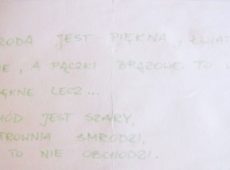 RODA JEST PIĘKNA, KWIAT
E, A PĄCZKI BRĄZOWE. TO
PIĘKNE LECZ...
HÓD JEST SZARY,
TROWNIA SMRODZI,
TO NIE OBCHODZI.